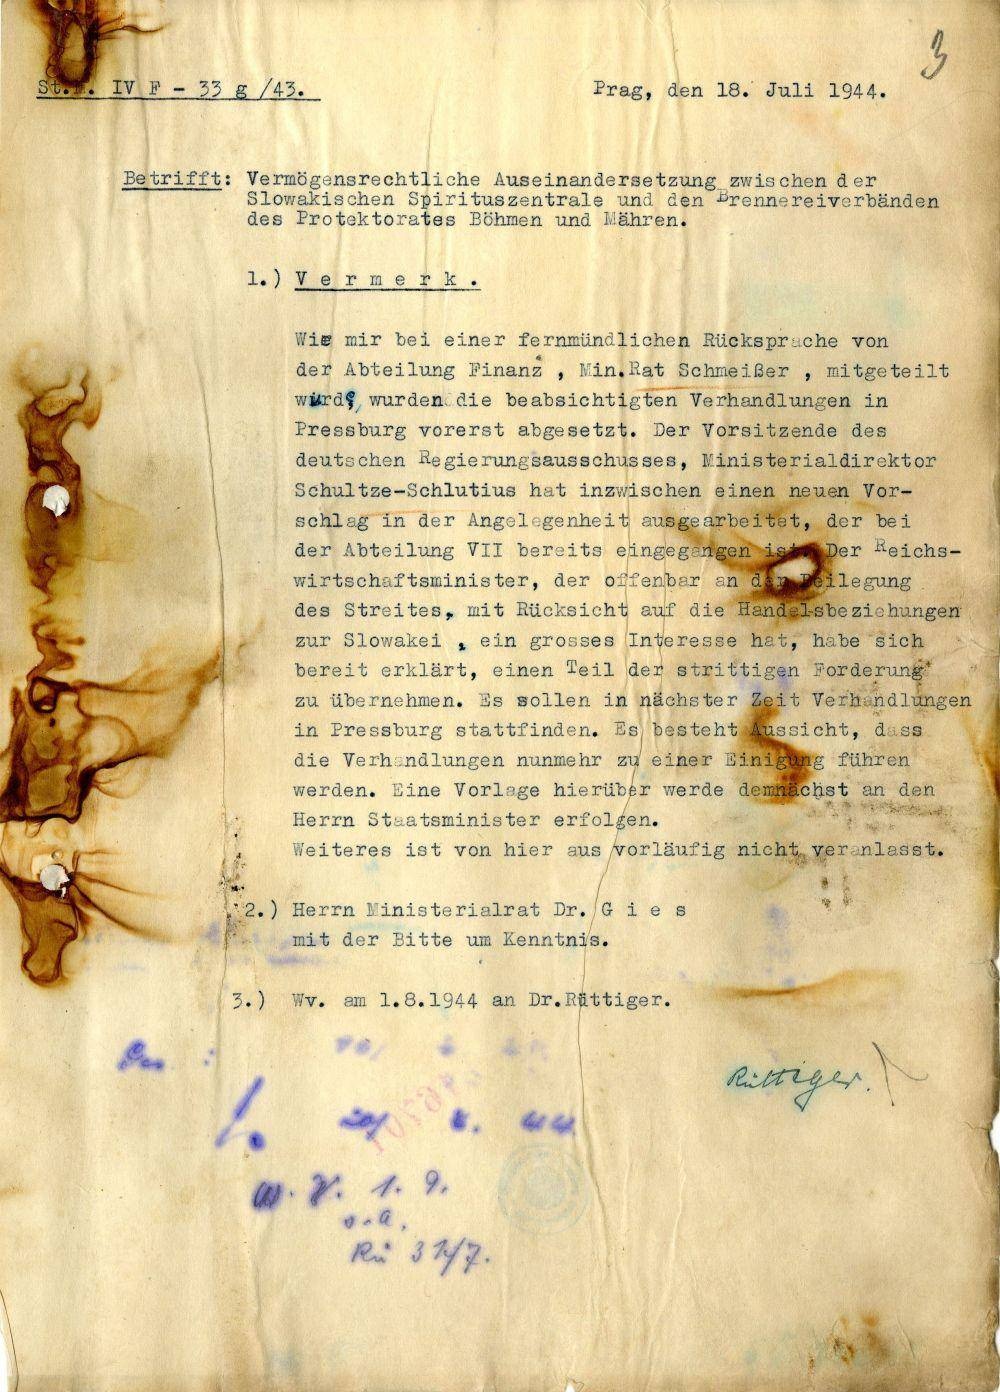 3
St.M. IV F - 33 g /43.
Prag, den 18. Juli 1944.
Betrifft: Vermögensrechtliche Auseinandersetzung zwischen der
Slowakischen Spirituszentrale und den Brennereiverbänden
des Protektorates Böhmen und Mähren.
1.) V e r m e r k .
Wie mir bei einer fernmündlichen Rücksprache von
der Abteilung Finanz , Min.Rat Schmeißer , mitgeteilt
wurde, wurden die beabsichtigten Verhandlungen in
Pressburg vorerst abgesetzt. Der Vorsitzende des
deutschen Regierungsausschusses, Ministerialdirektor
Schultze-Schlutius hat inzwischen einen neuen Vor-
schlag in der Angelegenheit ausgearbeitet, der bei
der Abteilung VII bereits eingegangen ist. Der Reichs-
wirtschaftsminister, der offenbar an der Beilegung
des Streites, mit Rücksicht auf die Handelsbeziehungen
zur Slowakei , ein grosses Interesse hat, habe sich
bereit erklärt, einen Teil der strittigen Forderung
zu übernehmen. Es sollen in nächster Zeit Verhandlungen
in Pressburg stattfinden. Es besteht Aussicht, dass
die Verhandlungen nunmehr zu einer Einigung führen
werden. Eine Vorlage hierüber werde demnächst an den
Herrn Staatsminister erfolgen.
Weiteres ist von hier aus vorläufig nicht veranlasst.
2.) Herrn Ministerialrat Dr. G i e s
mit der Bitte um Kenntnis.
3.) Wv. am 1.8.1944 an Dr.Rüttiger.
Rüttiger.
W. V. 1. 9.
Rü 31/7.